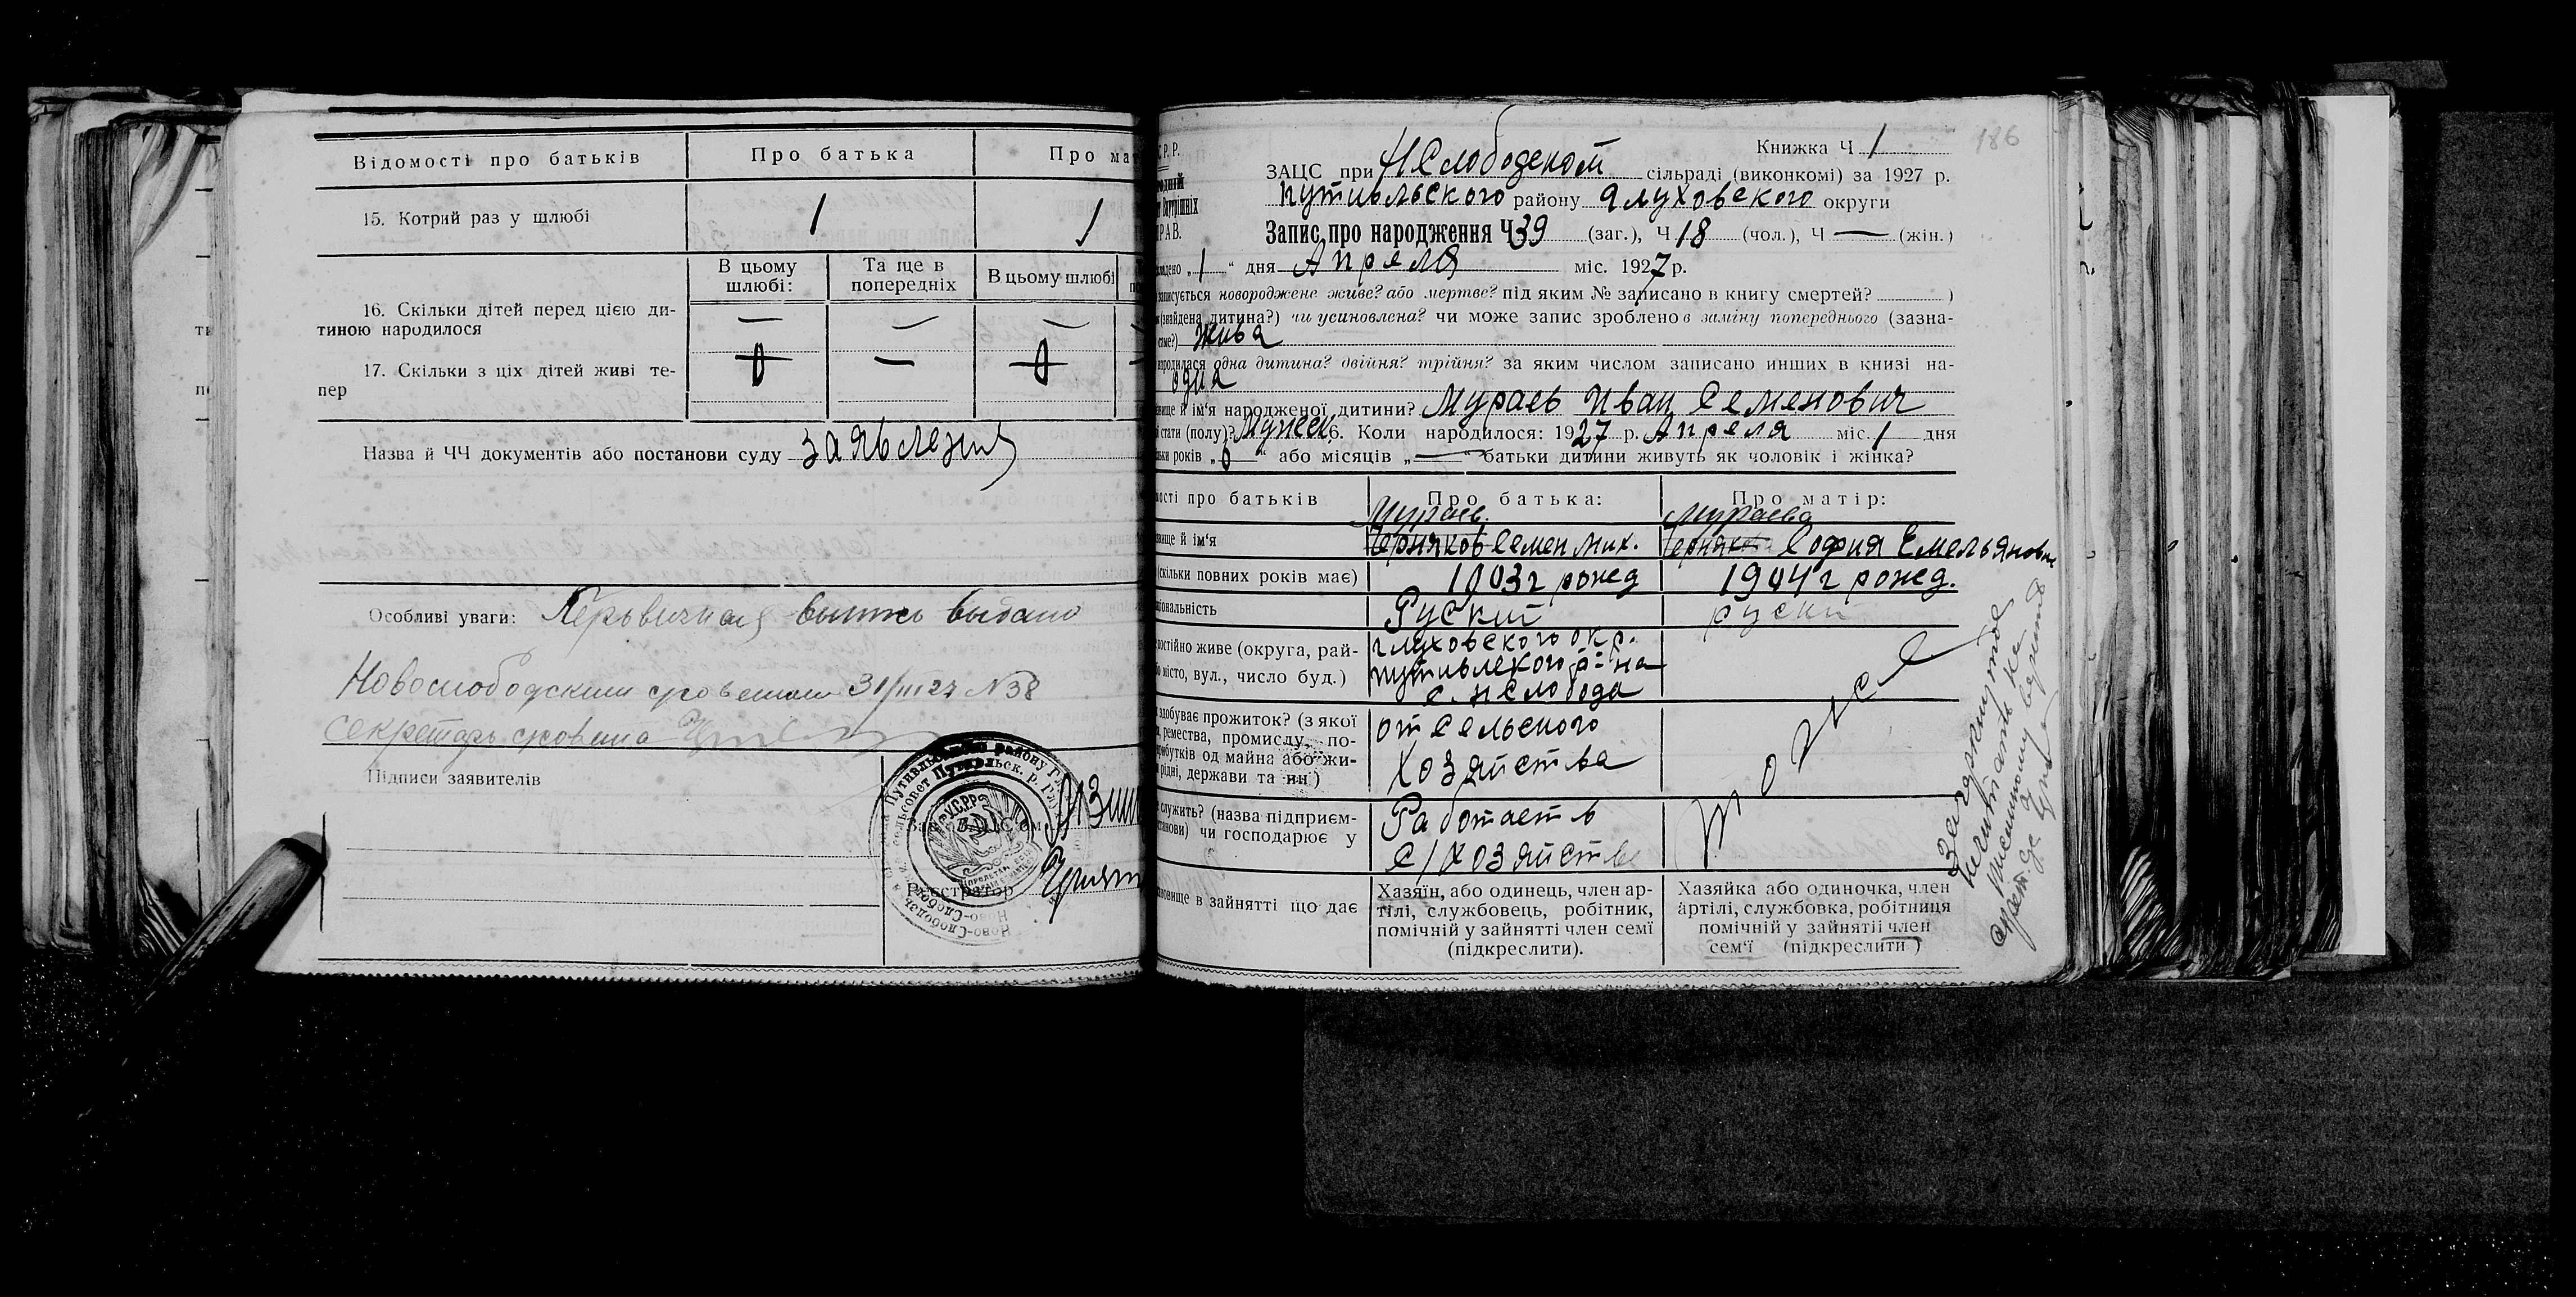 Відомості про батьків
Про батька
Про мат
15. Котрий раз у шлюбі
1
1
В цьому шлюбі:
Та ще в попередніх
В цьому шлюбі
16. Скільки дітей перед цією ди-
тиною народилося
—
—
—
17. Скільки з ціх дітей живі те-
пер
0
—
0
Назва й ЧЧ документів або постанови суду заявления
Особливі уваги: Первичная выпись выдана
Новослободским
31/III 27 N 38
секретарь
Підписи заявителів
Реєстратор
186
С.Р.Р.
Книжка Ч 1
ЗАЦС при Н Слободском сільраді (виконкомі) за 1927 р.
Путивльского району Глуховского округи
Запис про народження Ч 39 (заг.), Ч 18 (чол.), Ч — (жін.)
„1“ дня Апреля міс. 1927 р.
записується новороджене живе? або мертве? під яким № записано в книгу смертей? )
(знайдена дитина?) чи усиновлена? чи може запис зроблено в заміну попереднього (зазна-
саме?) жива
народилася одна дитина? двійня? трійня? за яким числом записано инших в книзі на-
одна
й ім'я народженої дитини? Мураев Иван Семенович
стати (полу)? Мужск 6. Коли народилося: 1927 р. Апреля міс. 1 дня
років „0“ або місяців „—“ батьки дитини живуть як чоловік і жінка?
про батьків
Про батька:
Про матір:
Мураев
Мураева
й ім'я
Черняков Семен Мих.
София Емельяновна
(скільки повних років має)
1903 г рожд
1904 г рожд.
Руский
руски
постійно живе (округа, рай-
місто, вул., число буд.)
Глуховского окр.
Путивлского р-на
с. Н Слобода
здобуває прожиток? (з якої
ремества, промислу, по-
прибутків од майна або жи-
рідні, держави та ин)
от сельского
хозяйства
то же
служить? (назва підприєм-
чи господарює у
Работает в
с/хозяйстве
в зайнятті що дає
Хазяїн, або одинець, член ар-
тілі, службовець, робітник,
помічній у зайнятті член семї
(підкреслити).
Хазяйка або одиночка, член
артілі, службовка, робітниця
помічній у зайнятії член
сем'ї (підкреслити)